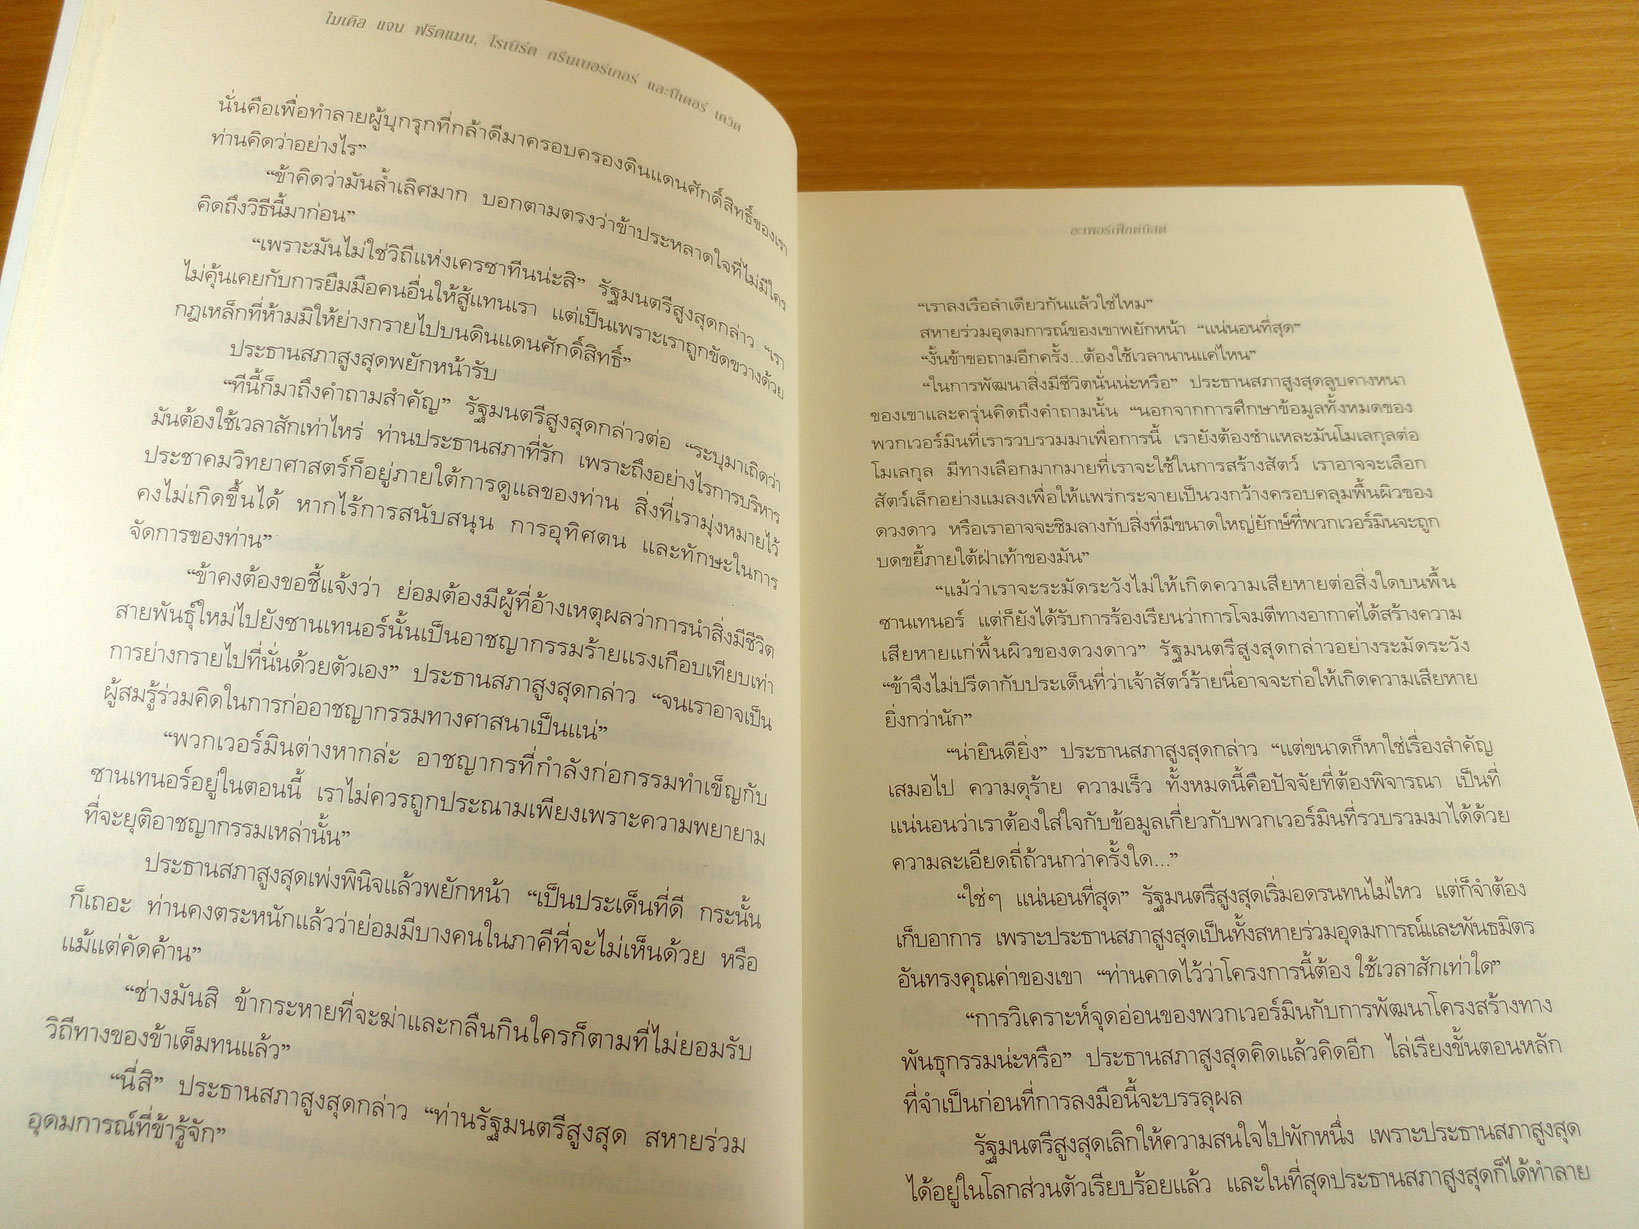 ไมเคิล แจน ฟรีดแมน, โรเบิร์ต กรีนเบอร์เกอร์ และปีเตอร์ เดวิด
นั่นคือเพื่อทำลายผู้บุกรุกที่กล้าดีมาครอบครองดินแดนศักดิ์สิทธิ์ของเรา
ท่านคิดว่าอย่างไร”
“ข้าคิดว่ามันล้ำเลิศมาก บอกตามตรงว่าข้าประหลาดใจที่ไม่มีใคร
คิดถึงวิธีนี้มาก่อน”
“เพราะมันไม่ใช่วิถีแห่งเครซาทีนน่ะสิ” รัฐมนตรีสูงสุดกล่าว “เรา
ไม่คุ้นเคยกับการยืมมือคนอื่นให้สู้แทนเรา แต่เป็นเพราะเราถูกขัดขวางด้วย
กฎเหล็กที่ห้ามมิให้ย่างกรายไปบนดินแดนศักดิ์สิทธิ์”
ประธานสภาสูงสุดพยักหน้ารับ
“ทีนี้ก็มาถึงคำถามสำคัญ” รัฐมนตรีสูงสุดกล่าวต่อ “ระบุมาเถิดว่า
มันต้องใช้เวลาสักเท่าไหร่ ท่านประธานสภาที่รัก เพราะถึงอย่างไรการบริหาร
ประชาคมวิทยาศาสตร์ก็อยู่ภายใต้การดูแลของท่าน สิ่งที่เรามุ่งหมายไว้
คงไม่เกิดขึ้นได้ หากไร้การสนับสนุน การอุทิศตน และทักษะในการ
จัดการของท่าน”
“ข้าคงต้องขอชี้แจ้งว่า ย่อมต้องมีผู้ที่อ้างเหตุผลว่าการนำสิ่งมีชีวิต
สายพันธุ์ใหม่ไปยังซานเทนอร์นั้นเป็นอาชญากรรมร้ายแรงเกือบเทียบเท่า
การย่างกรายไปที่นั่นด้วยตัวเอง” ประธานสภาสูงสุดกล่าว “จนเราอาจเป็น
ผู้สมรู้ร่วมคิดในการก่ออาชญากรรมทางศาสนาเป็นแน่”
“พวกเวอร์มินต่างหากล่ะ อาชญากรที่กำลังก่อกรรมทำเข็ญกับ
ซานเทนอร์อยู่ในตอนนี้ เราไม่ควรถูกประณามเพียงเพราะความพยายาม
ที่จะยุติอาชญากรรมเหล่านั้น”
ประธานสภาสูงสุดเพ่งพินิจแล้วพยักหน้า “เป็นประเด็นที่ดี กระนั้น
ก็เถอะ ท่านคงตระหนักแล้วว่าย่อมมีบางคนในภาคีที่จะไม่เห็นด้วย หรือ
แม้แต่คัดค้าน”
“ช่างมันสิ ข้ากระหายที่จะฆ่าและกลืนกินใครก็ตามที่ไม่ยอมรับ
วิถีทางของข้าเต็มทนแล้ว”
“นี่สิ” ประธานสภาสูงสุดกล่าว “ท่านรัฐมนตรีสูงสุด สหายร่วม
อุดมการณ์ที่ข้ารู้จัก”
อะเพอร์เฟ็กต์บีสต์
“เราลงเรือลำเดียวกันแล้วใช่ไหม”
สหายร่วมอุดมการณ์ของเขาพยักหน้า “แน่นอนที่สุด”
“งั้นข้าขอถามอีกครั้ง...ต้องใช้เวลานานแค่ไหน”
“ในการพัฒนาสิ่งมีชีวิตนั่นน่ะหรือ” ประธานสภาสูงสุดลูบคางหนา
ของเขาและครุ่นคิดถึงคำถามนั้น “นอกจากการศึกษาข้อมูลทั้งหมดของ
พวกเวอร์มินที่เรารวบรวมมาเพื่อการนี้ เรายังต้องชำแหละมันโมเลกุลต่อ
โมเลกุล มีทางเลือกมากมายที่เราจะใช้ในการสร้างสัตว์ เราอาจจะเลือก
สัตว์เล็กอย่างแมลงเพื่อให้แพร่กระจายเป็นวงกว้างครอบคลุมพื้นผิวของ
ดวงดาว หรือเราอาจจะชิมลางกับสิ่งที่มีขนาดใหญ่ยักษ์ที่พวกเวอร์มินจะถูก
บดขยี้ภายใต้ฝ่าเท้าของมัน”
“แม้ว่าเราจะระมัดระวังไม่ให้เกิดความเสียหายต่อสิ่งใดบนพื้น
ซานเทนอร์ แต่ก็ยังได้รับการร้องเรียนว่าการโจมตีทางอากาศได้สร้างความ
เสียหายแก่พื้นผิวของดวงดาว” รัฐมนตรีสูงสุดกล่าวอย่างระมัดระวัง
“ข้าจึงไม่ปรีดากับประเด็นที่ว่าเจ้าสัตว์ร้ายนี่อาจจะก่อให้เกิดความเสียหาย
ยิ่งกว่านัก”
“น่ายินดียิ่ง” ประธานสภาสูงสุดกล่าว “แต่ขนาดก็หาใช่เรื่องสำคัญ
เสมอไป ความดุร้าย ความเร็ว ทั้งหมดนี้คือปัจจัยที่ต้องพิจารณา เป็นที่
แน่นอนว่าเราต้องใส่ใจกับข้อมูลเกี่ยวกับพวกเวอร์มินที่รวบรวมมาได้ด้วย
ความละเอียดถี่ถ้วนกว่าครั้งใด...”
“ใช่ๆ แน่นอนที่สุด” รัฐมนตรีสูงสุดเริ่มอดรนทนไม่ไหว แต่ก็จำต้อง
เก็บอาการ เพราะประธานสภาสูงสุดเป็นทั้งสหายร่วมอุดมการณ์และพันธมิตร
อันทรงคุณค่าของเขา “ท่านคาดไว้ว่าโครงการนี้ต้องใช้เวลาสักเท่าใด”
“การวิเคราะห์จุดอ่อนของพวกเวอร์มินกับการพัฒนาโครงสร้างทาง
พันธุกรรมน่ะหรือ” ประธานสภาสูงสุดคิดแล้วคิดอีก ไล่เรียงขั้นตอนหลัก
ที่จำเป็นก่อนที่การลงมือนี้จะบรรลุผล
รัฐมนตรีสูงสุดเลิกให้ความสนใจไปพักหนึ่ง เพราะประธานสภาสูงสุด
ได้อยู่ในโลกส่วนตัวเรียบร้อยแล้ว และในที่สุดประธานสภาสูงสุดก็ได้ทำลาย